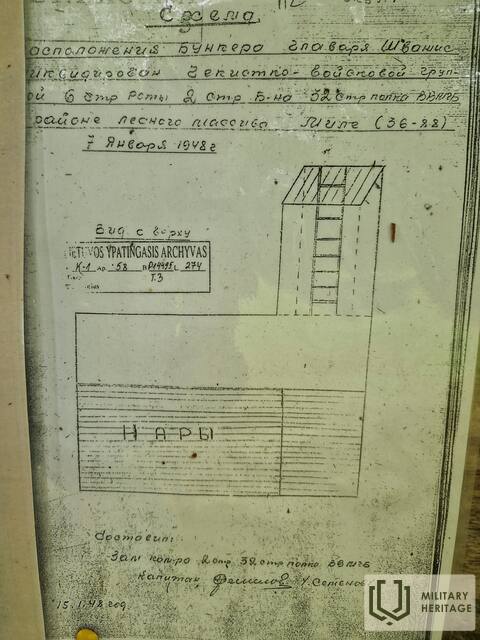 Схема
асположения Бункера главаря Шванис
иквидирован Чекистко-войсковой груп-
ой 6 стр Роты 2 стр. Б-на 32 стр полка ВВМГБ
районе лесного массива Миле (36-88)
7 Января 1948 г
Вид с верху
IETUVOS YPATINGASIS ARCHYVAS
K-1 ap. 58 274
T.3
НАРЫ
Составил:
Зам ком-ра 2 стр. 32 стр полка ВВМГБ
Капитан
15.1.48 год.
MILITARY
HERITAGE